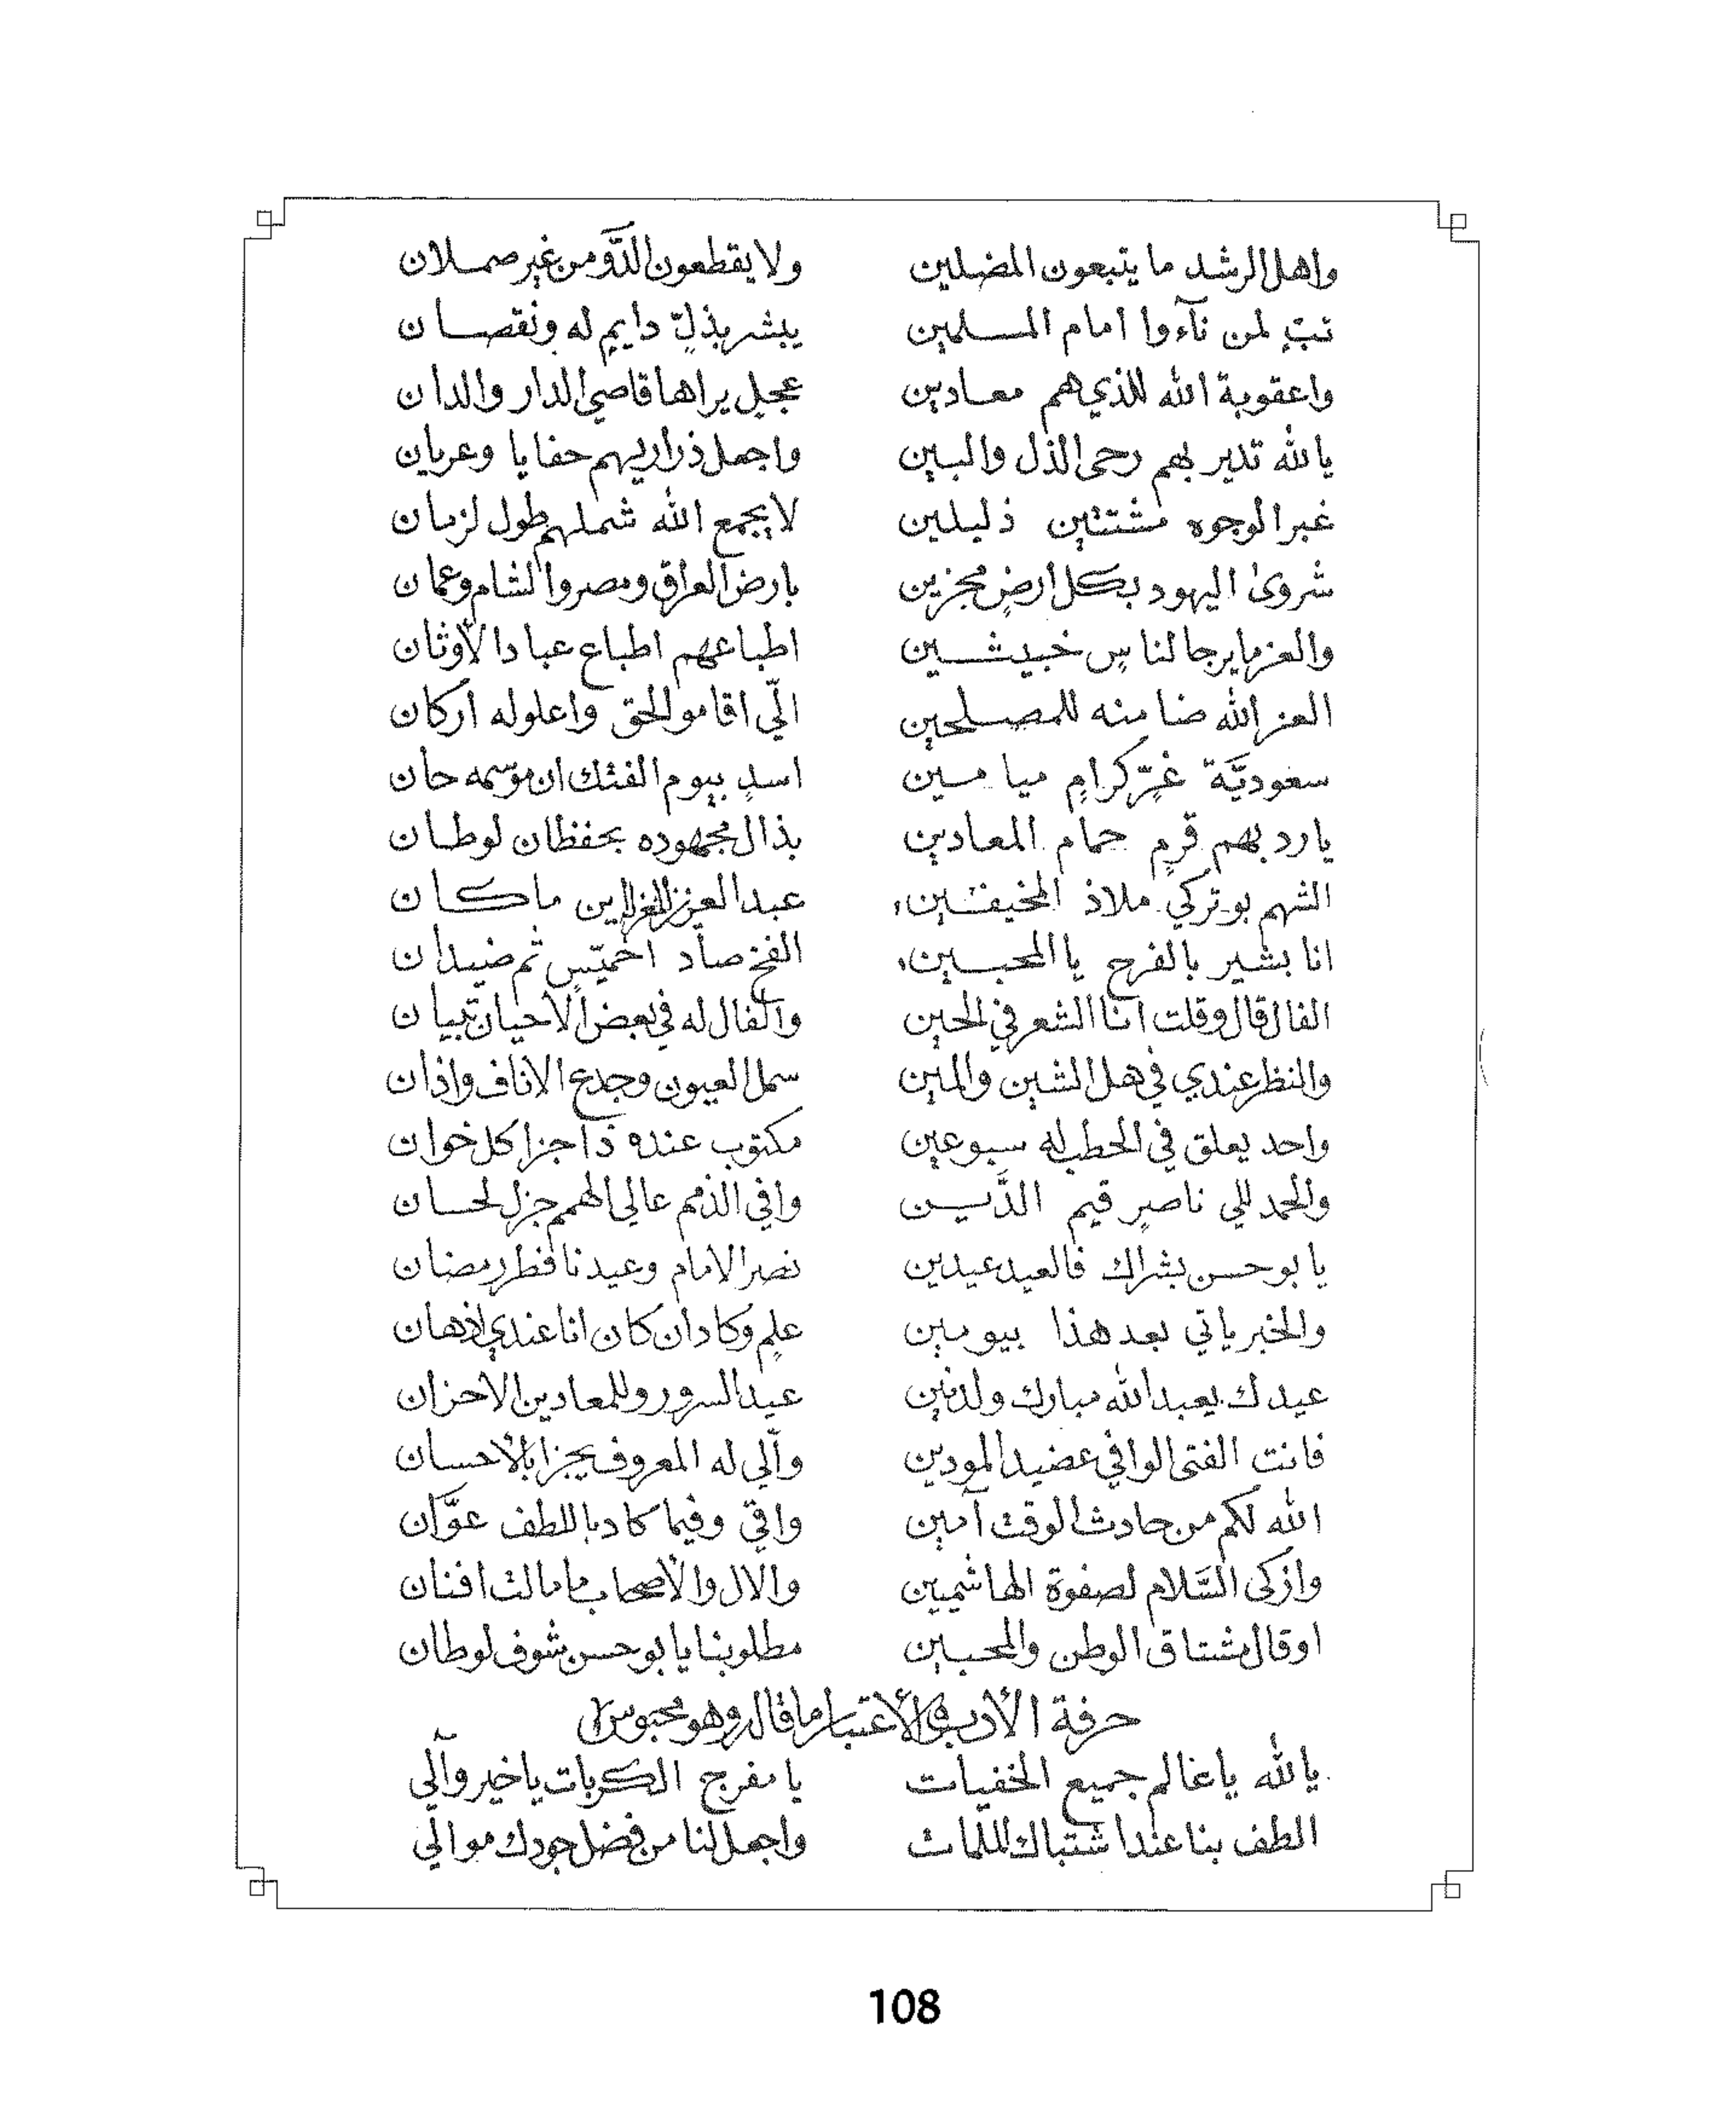 واهل الرشد ما يتبعون المضلين ولا يقطعون الدَّوّ من غير صملان
تبٍّ لمن ناءوا امام المسلمين يبشر بذلٍّ دايمٍ له ونقصان
واعقوبة الله للذي هم معادين عجلٍ يراها قاصي الدار والدان
يالله تدير بهم رحى الذل والبين واجعل ذراريهم حفايا وعريان
غبر الوجوه مشتتين ذليلين لا يجمع الله شملهم طول لزمان
شروى اليهود بكل ارضٍ مجزين بارض العراق ومصر والشام وعمان
والعز ما يرجا لناسٍ خبيثين اطباعهم اطباع عباد الأوثان
العز الله ضامنه للمصلحين الّي اقامو الحق واعلوله أركان
سعوديَّة غرٍّ كرامٍ ميامين اسدٍ بيوم الفتك ان موسمه حان
يارد بهم قرمٍ حمام المعادين بذال مجهوده بحفظان لوطان
الشهم بو تركي ملاذ المخيفين عبد العزيز ماكان
انا بشير بالفرح يا المحبين الفخ صاد اخميّسٍ ثم ضيدان
الفال قال وقلت انا الشعر في الحين والفال له في بعض الأحيان تبيان
والنظر عندي في هل الشين والمين سمل العيون وجدع الاناف واذان
واحد يعلق في الحطب له سبوعين مكتوب عنده ذا جزا كل خوان
والحمد للي ناصرٍ قيم الدَّين وافي الذمم عالي الهمم جزل لحسان
يا بو حسن بشراك فالعيد عيدين نصر الامام وعيدنا فطر رمضان
والخبر ياتي بعد هذا بيومين علمٍ وكادان كان انا عندي اذهان
عيدك يعبد الله مبارك ولدنين عيد السرور وللمعادين الاحزان
فانت الفتى الوافي عضيد المودين والّي له المعروف يجزا بالأحسان
الله لكم من حادث الوقت آمين واقي وفيما كاد باللطف عوَّان
وازكى السَّلام لصفوة الهاشميين والآل والأصحاب ما مالت افنان
اوقال مشتاق الوطن والمحبين مطلوبنا يا بو حسن شوف لوطان
حرفة الأدب الأعتبار ما قال وهو محبوس
يالله يا عالم جميع الخفيات يا مفرج الكربات يا خير والّي
الطف بنا عند اشتباك الملمات واجعل لنا من فضل جودك موالّي
108